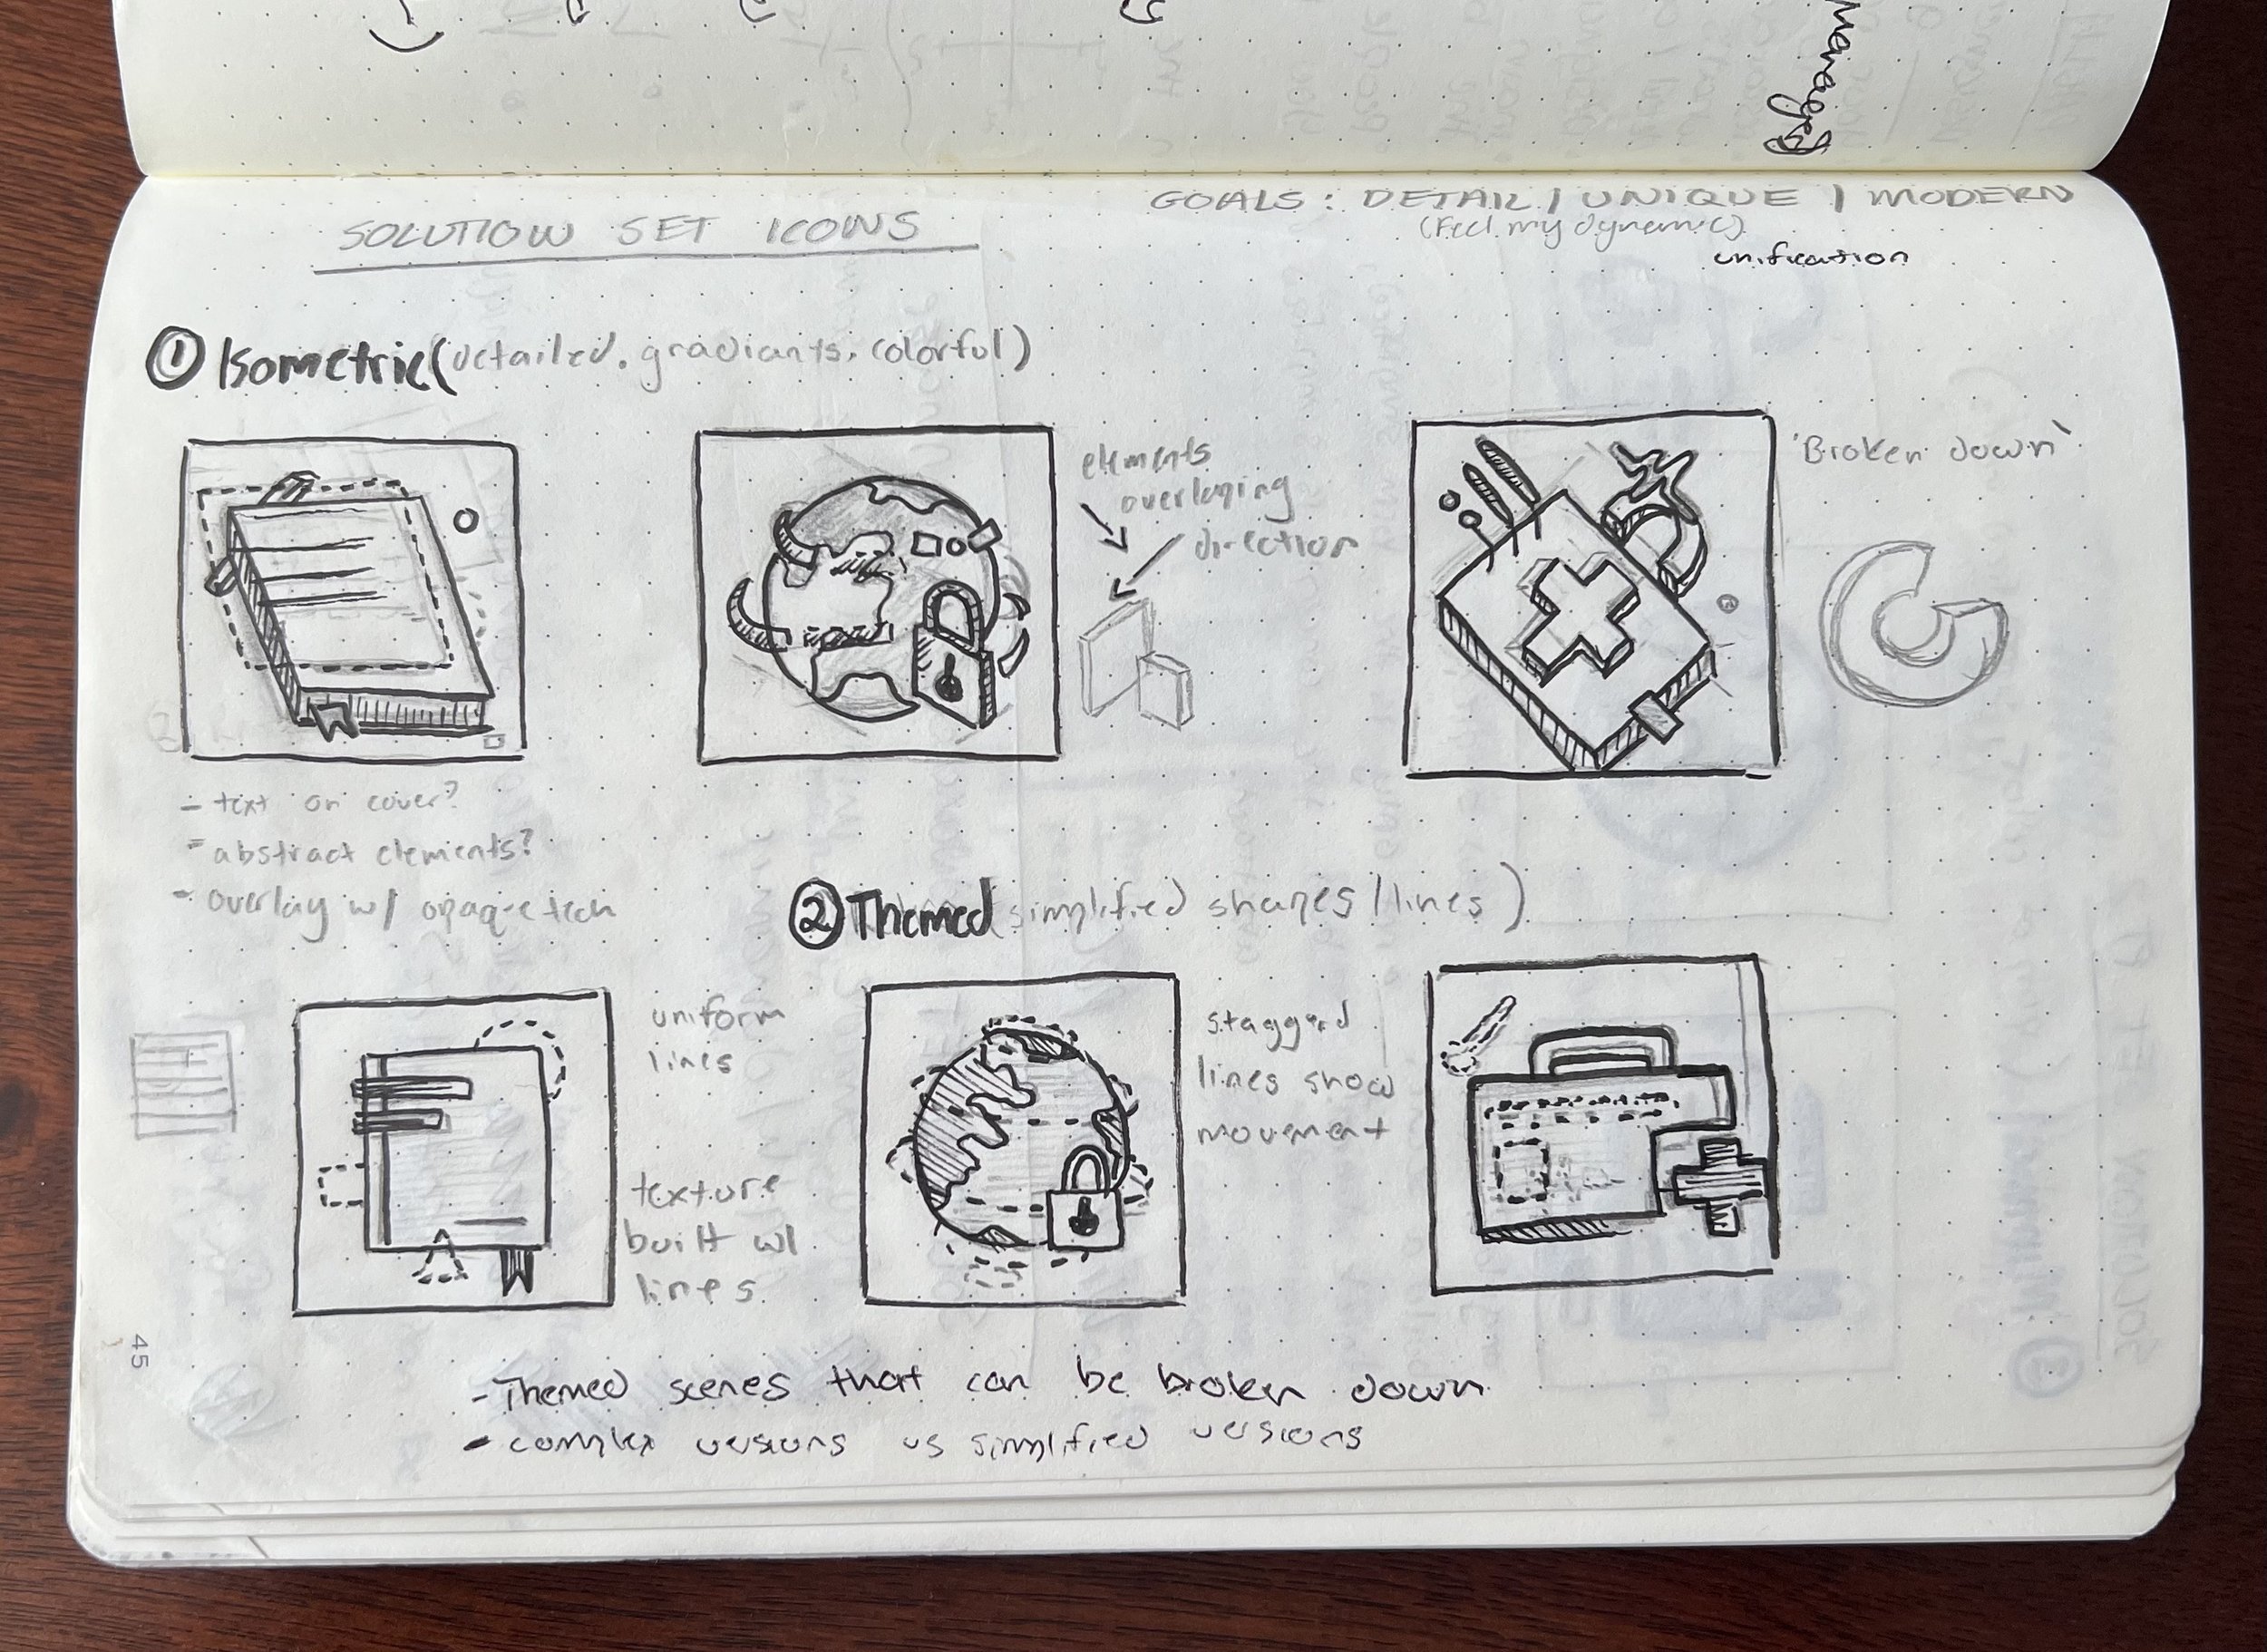 Manager)
GOALS : DETAIL / UNIQUE / MODERN
SOLUTION SET ICONS
(Feel my dynamic)
unification
① Isometric (detailed, gradiants, colorful)
elements
overlaping
direction
'Broken down'
- text on cover?
- abstract elements?
- overlay w/ opaque tech
② Themed (simplified shapes / lines)
uniform
lines
texture
built w/
lines
staggerd
lines show
movement
45
- Themed scenes that can be broken down
- complex versions vs simplified versions